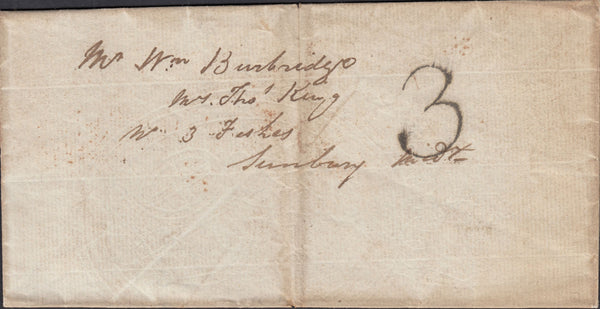 Mr Wm Burbridge
Mr. Thos King
Nr 3 Fishes
Sunbury Middx
3